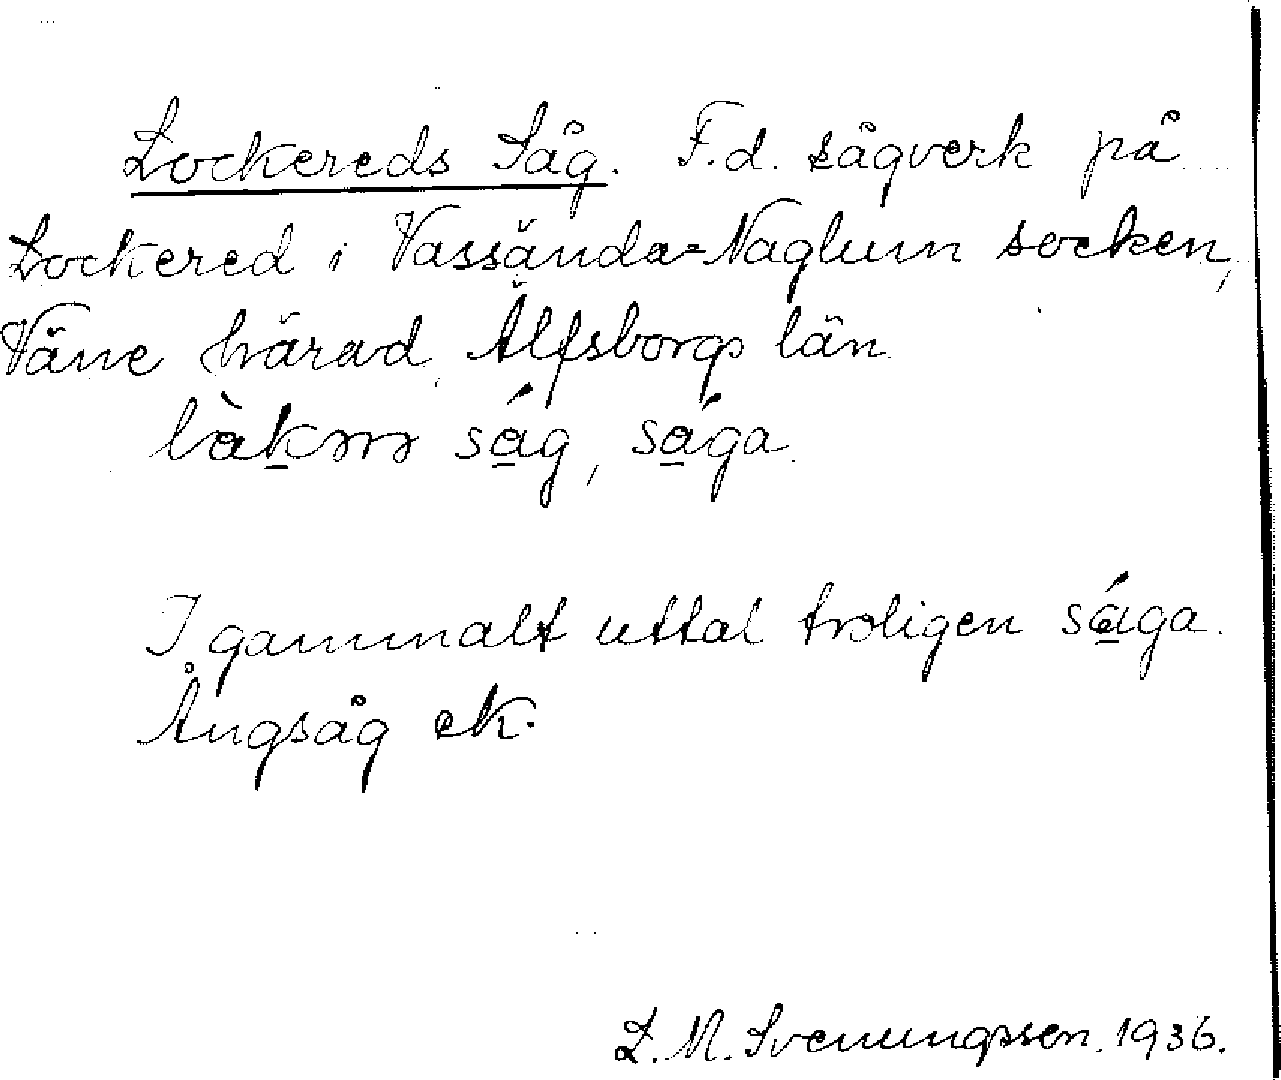 Lockereds Såg. F.d. sågverk på
Lockered i Vassända-Naglum socken,
Väne härad, Älfsborgs län.
såg, såga.
I gammalt uttal troligen såga.
Ångsåg
L. M. Svenungsson. 1936.